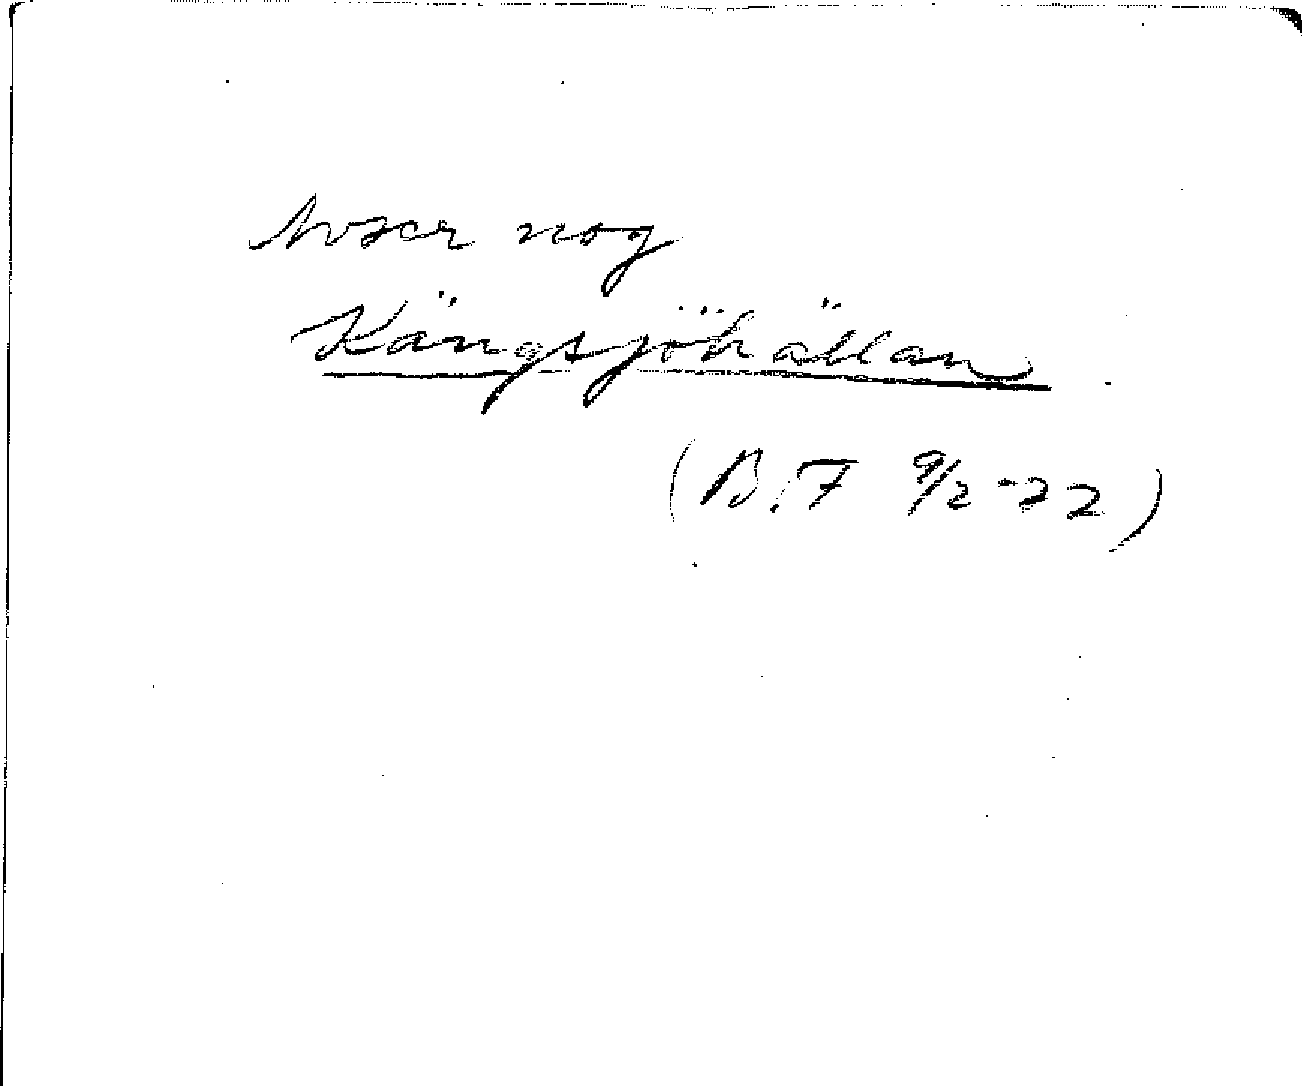 Avser nog
Kängsjöhällan
(B.F 9/2-22)